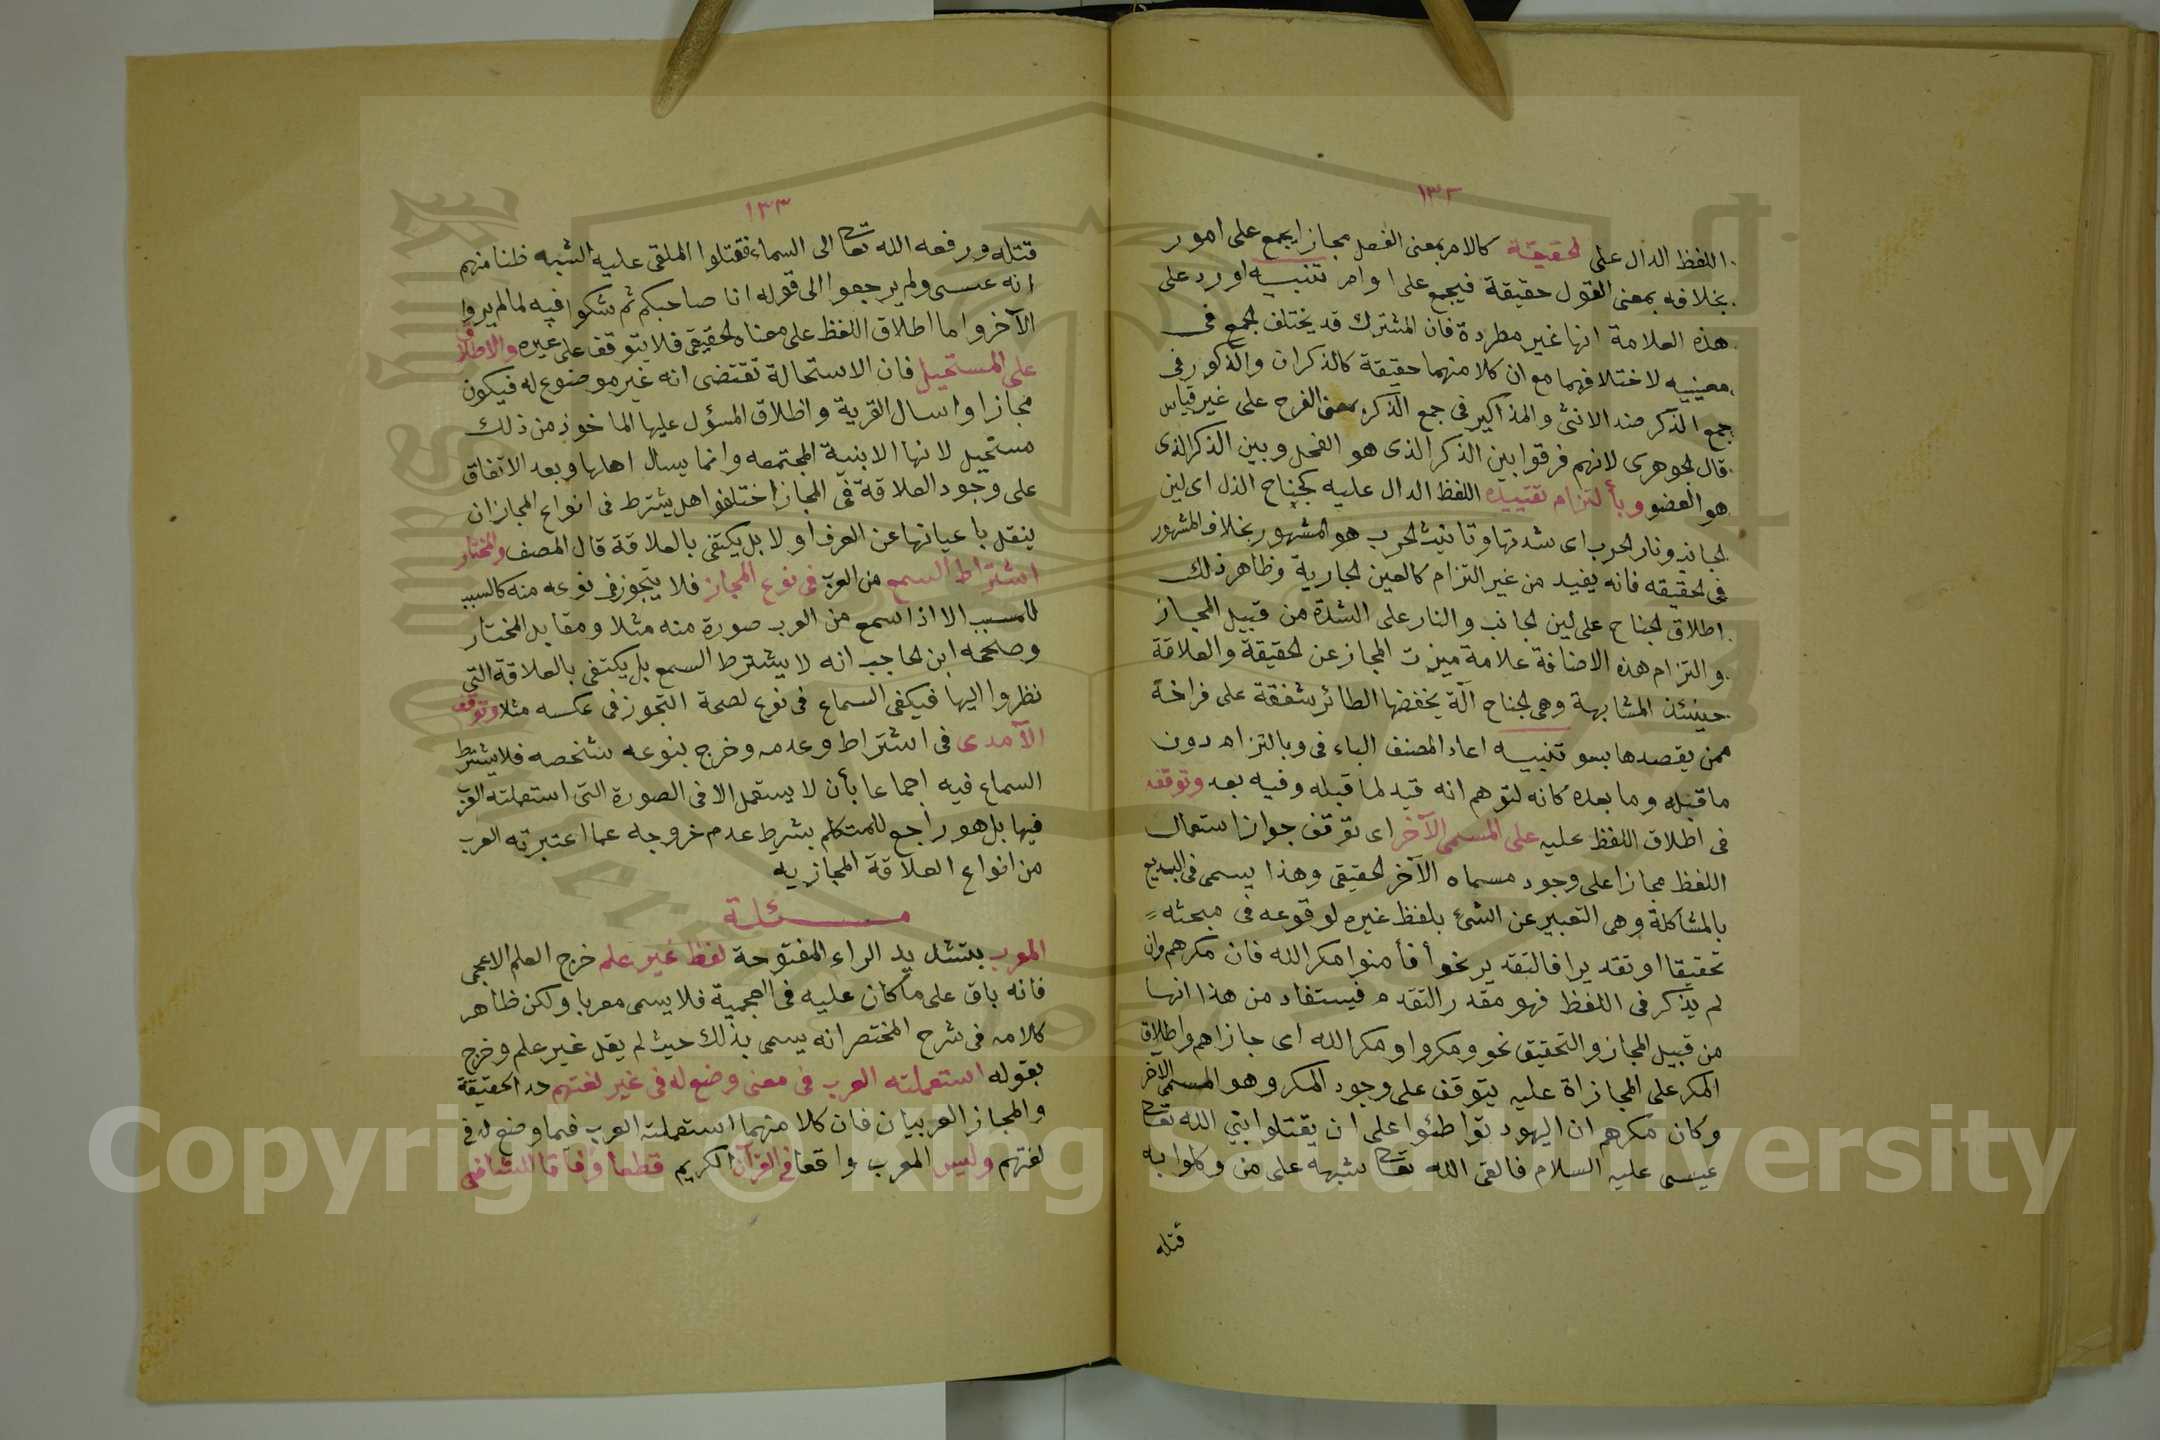 ١٣٢
اللفظ الدال على الحقيقة كالامر بمعنى الفعل مجازا يجمع على امور
بخلافه بمعنى القول حقيقة فيجمع على اوامر تنبيه اورد على
هذه العلامة انها غير مطردة فان المشترك قد يختلف الجمع فى
معنييه لاختلافهما مع ان كلا منهما حقيقة كالذكران والذكور فى
جمع الذكر ضد الانثى والمذاكير فى جمع الذكر بمعنى الفرج على غير قياس
قال الجوهرى لانهم فرقوا بين الذكر الذى هو الفحل وبين الذكر الذى
هو العضو وبألتزام تقييده اللفظ الدال عليه كجناح الذل اى لين
الجانب ونار الحرب اى شدتها وتانيث الحرب هو المشهور بخلاف المشهور
فى الحقيقه فانه يفيد من غير التزام كالعين الجارية وظاهر ذلك
اطلاق الجناح على لين الجانب والنار على الشدة من قبيل المجاز
والتزام هذه الاضافة علامة ميزت المجاز عن الحقيقة والعلاقة
حينئذ المشابهة وهى الجناح آلة يخفضها الطائر شفقة على فراخه
ممن يقصدها بسو تنبيه اعاد المصنف الباء فى وبالتزام دون
ما قبله وما بعده كانه لتوهم انه قيد لما قبله وفيه بعد وتوقفه
فى اطلاق اللفظ عليه على المسمى الآخر اى توقف جواز استعمال
اللفظ مجازا على وجود مسماه الآخر الحقيقى وهذا يسمى فى البديع
بالمشاكلة وهى التعبير عن الشئ بلفظ غيره لوقوعه فى مبحثه
تحقيقا او تقديرا فالتقدير نحو أفأمنوا مكر الله فان مكرهم وان
لم يذكر فى اللفظ فهو مقدر التقدم فيستفاد من هذا انها
من قبيل المجاز والتحقيق نحو ومكروا ومكر الله اى جازاهم واطلاق
المكر على المجازاة عليه يتوقف على وجود المكر وهو المسمى الآخر
وكان مكرهم ان اليهود تواطئوا على ان يقتلوا نبي الله تعا
عيسى عليه السلام فالقى الله تعا شبهه على من وكلوا به
قتله
١٣٣
قتله ورفعه الله تعا الى السماء فقتلوا الملقى عليه الشبه ظنا منهم
انه عسى ولم يرجعوا الى قوله انا صاحبكم ثم شكوا فيه لما لم يروا
الآخر واما اطلاق اللفظ على معناه الحقيقى فلا يتوقف على غيره والاطلاق
على المستحيل فان الاستحالة تقتضى انه غير موضوع له فيكون
مجازا واسال القرية واطلاق المسؤل عليها الماخوذ من ذلك
مستحيل لانها الابنية المجتمعه وانما يسال اهلها وبعد الاتفاق
على وجود العلاقة فى المجاز اختلفوا هل يشترط فى انواع المجاز ان
ينقل باعيانها عن العرف او لا بل يكتفى بالعلاقة قال المصنف والمختار
اشتراط السمع من العرب فى نوع المجاز فلا يتجوز فى نوعه منه كالسبب
للمسبب الا اذا سمع من العرب صورة منه مثلا ومقابل المختار
وصححه ابن الحاجب انه لا يشترط السمع بل يكتفى بالعلاقة التى
نظروا اليها فيكفى السماع فى نوع لصحة التجوز فى عكسه مثلا وتوقف
الآمدى فى اشتراط وعدمه وخرج بنوعه شخصه فلا يشترط
السماع فيه اجماعا بأن لا يستعمل الا فى الصورة التى استعملته العرب
فيها بل هو راجع للمتكلم بشرط عدم خروجه عما اعتبرته العرب
من انواع العلاقة المجازيه
مسئلة
المعرب بتشديد الراء المفتوحة لفظ غير علم خرج العلم الاعجمى
فانه باق على ما كان عليه فى العجمية فلا يسمى معربا ولكن ظاهر
كلامه فى شرح المختصر انه يسمى بذلك حيث لم يقل غير علم وخرج
بقوله استعملته العرب فى معنى وضع له فى غير لغتهم حد الحقيقة
والمجاز العربيان فان كلا منهما استعملته العرب فيما وضع له فى
لغتهم وليس المعرب واقعا فى القرآن الكريم قطعا وفاقا للشافعى
Copyright © King Saud University